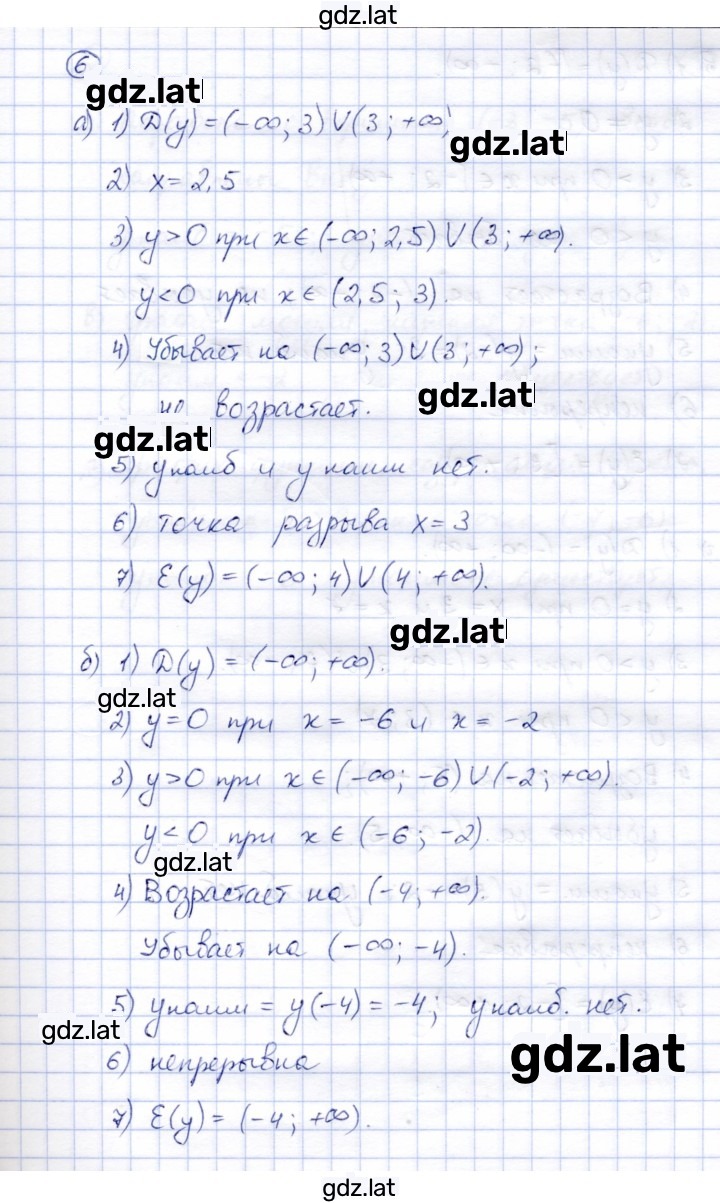 gdz.lat
6
gdz.lat
а) 1) D(y) = (-∞; 3) ∪ (3; +∞)
gdz.lat
2) x = 2,5
3) y > 0 при x ∈ (-∞; 2,5) ∪ (3; +∞).
y < 0 при x ∈ (2,5; 3).
4) Убывает на (-∞; 3) ∪ (3; +∞);
gdz.lat
возрастает.
gdz.lat
5) y наиб и y наим нет.
6) точка разрыва x = 3
7) E(y) = (-∞; 4) ∪ (4; +∞).
gdz.lat
б) 1) D(y) = (-∞; +∞).
gdz.lat
2) y = 0 при x = -6 и x = -2
3) y > 0 при x ∈ (-∞; -6) ∪ (-2; +∞).
y < 0 при x ∈ (-6; -2).
gdz.lat
4) Возрастает на (-4; +∞).
Убывает на (-∞; -4).
5) y наим = y(-4) = -4; y наиб. нет.
gdz.lat
gdz.lat
6) непрерывна
7) E(y) = (-4; +∞).
gdz.lat